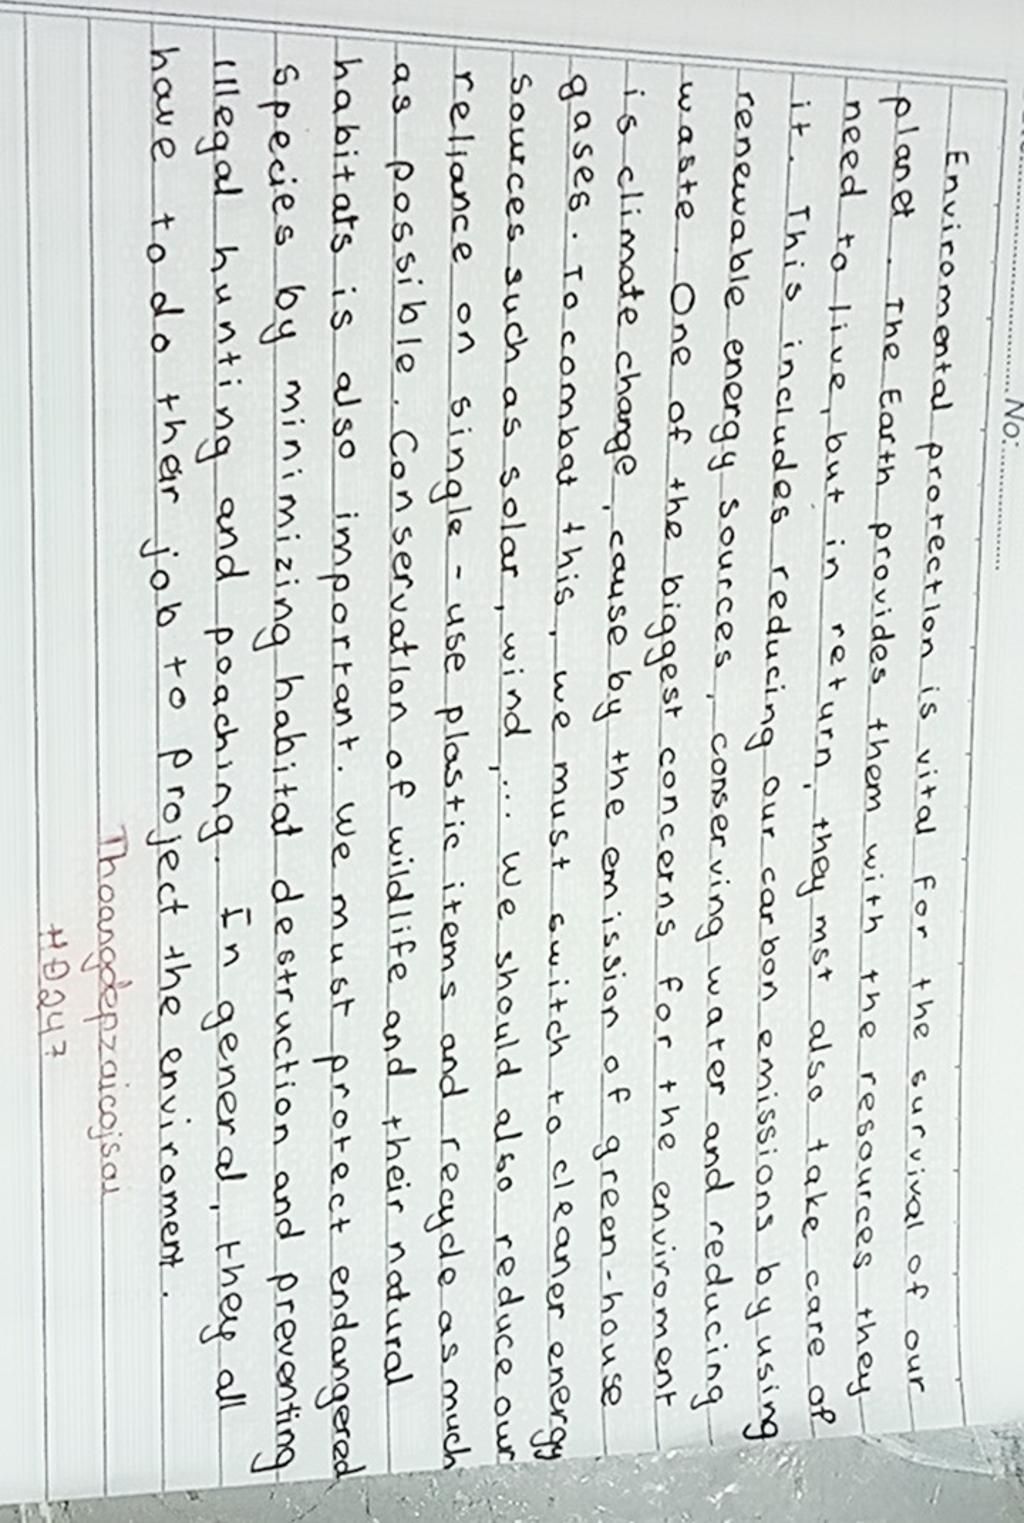 No:
Enviromental protection is vital for the survival of our
planet. The Earth provides them with the resources they
need to live, but in return, they mst also take care of
it. This includes reducing our carbon emissions by using
renewable energy sources, conserving water and reducing
waste. One of the biggest concerns for the enviroment
is climate change, cause by the emission of green-house
gases. To combat this, we must switch to cleaner energy
sources such as solar, wind,... We should also reduce our
reliance on single-use plastic items and recycle as much
as possible. Conservation of wildlife and their natural
habitats is also important. We must protect endangered
species by minimizing habitat destruction and preventing
illegal hunting and poaching. In general, they all
have to do their job to project the enviroment.
Thoangdepzaicojsai
HD247